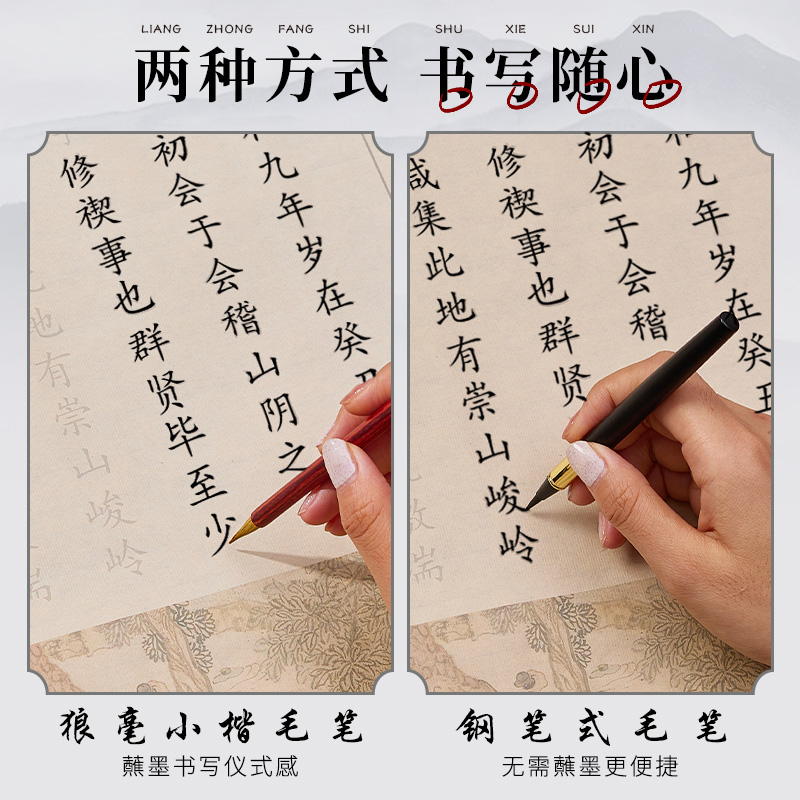 LIANG ZHONG FANG SHI SHU XIE SUI XIN
两种方式 书写随心
九年岁在癸
初会于会稽山阴之
修禊事也群贤毕至少
地有崇山峻岭
和九年岁在癸丑
初会于会稽
修禊事也群贤
咸集此地有崇山峻岭
湍
狼毫小楷毛笔
蘸墨书写仪式感
钢笔式毛笔
无需蘸墨更便捷